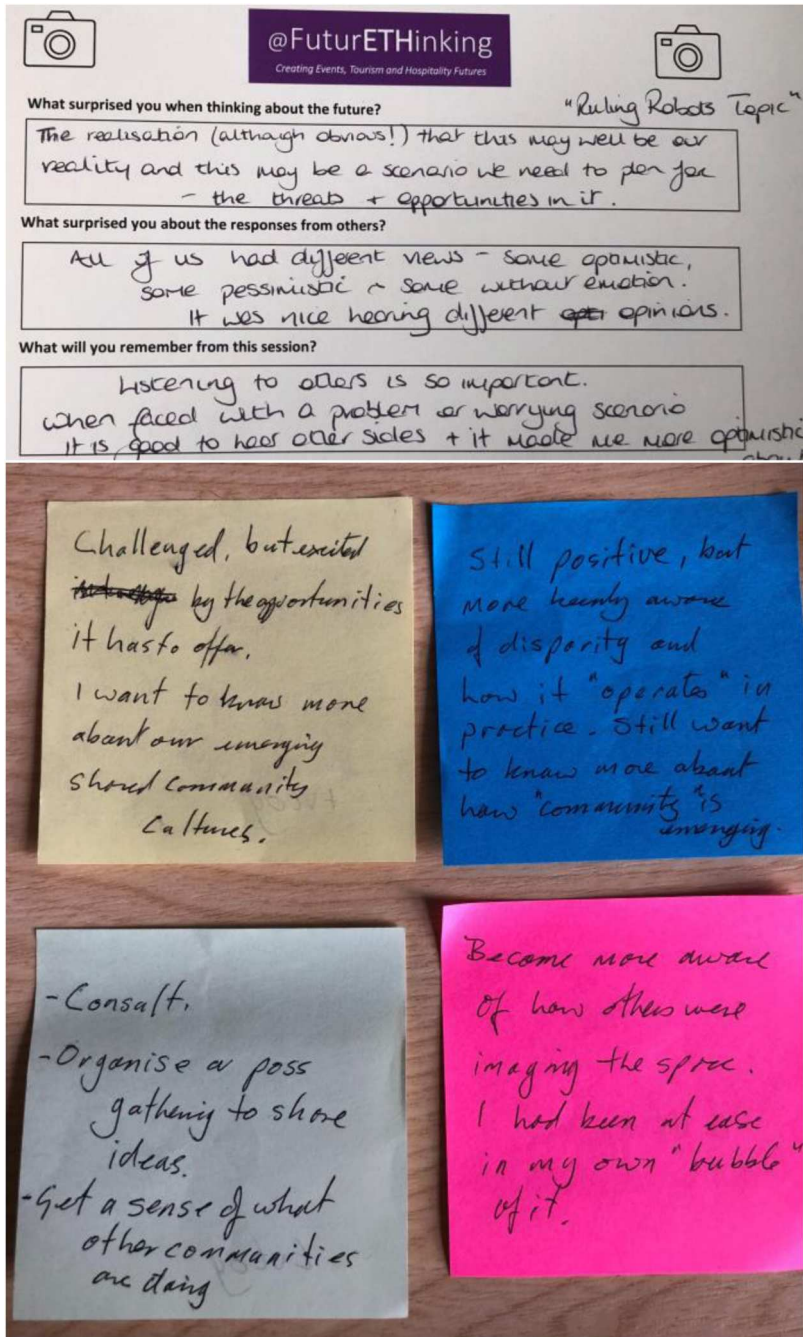 @FuturETHinking
Creating Events, Tourism and Hospitality Futures
"Ruling Robots Topic"
What surprised you when thinking about the future?
The realisation (although obvious!) that this may well be our
reality and this may be a scenario we need to plan for
- the threats + opportunities in it.
What surprised you about the responses from others?
All of us had different views - some optimistic,
some pessimistic ~ some without emotion.
It was nice hearing different opinions.
What will you remember from this session?
Listening to others is so important.
when faced with a problem or worrying scenario
it is good to hear other sides + it made me more optimistic
Challenged, but excited
by the opportunities
it has to offer.
I want to know more
about our emerging
shared community
cultures.
Still positive, but
more keenly aware
of disparity and
how it "operates" in
practice. Still want
to know more about
how "community" is
emerging.
- Consult.
- Organise a poss
gathering to share
ideas.
- Get a sense of what
other communities
are doing
Become more aware
of how others were
imaging the space.
I had been at ease
in my own "bubble"
of it.